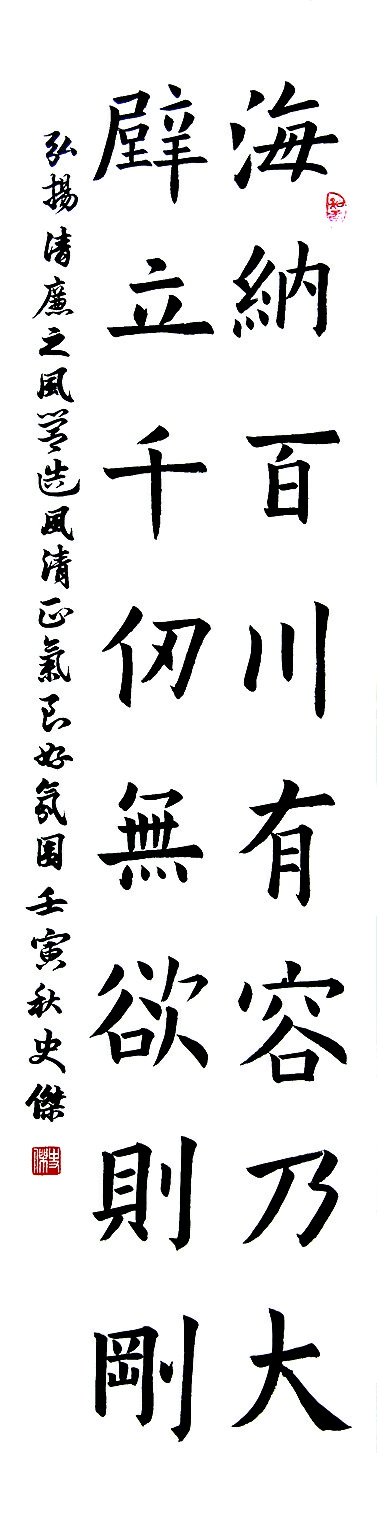 海納百川有容乃大
辟立千仞無欲則剛
弘揚清廉之風營造風清正氣良好氛围壬寅秋史傑
史傑